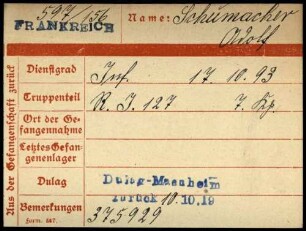 597/56 Name: Schumacher
FRANKREICH Adolf
Aus der Gefangenschaft zurück
Dienstgrad Inf. 17. 10. 93
Truppenteil R. I. 127 7. Kp.
Ort der Gefangennahme
Letztes Gefangenenlager
Dulag Dulag-Mannheim
zurück 10.10.19
Bemerkungen 375929
Form. 587.